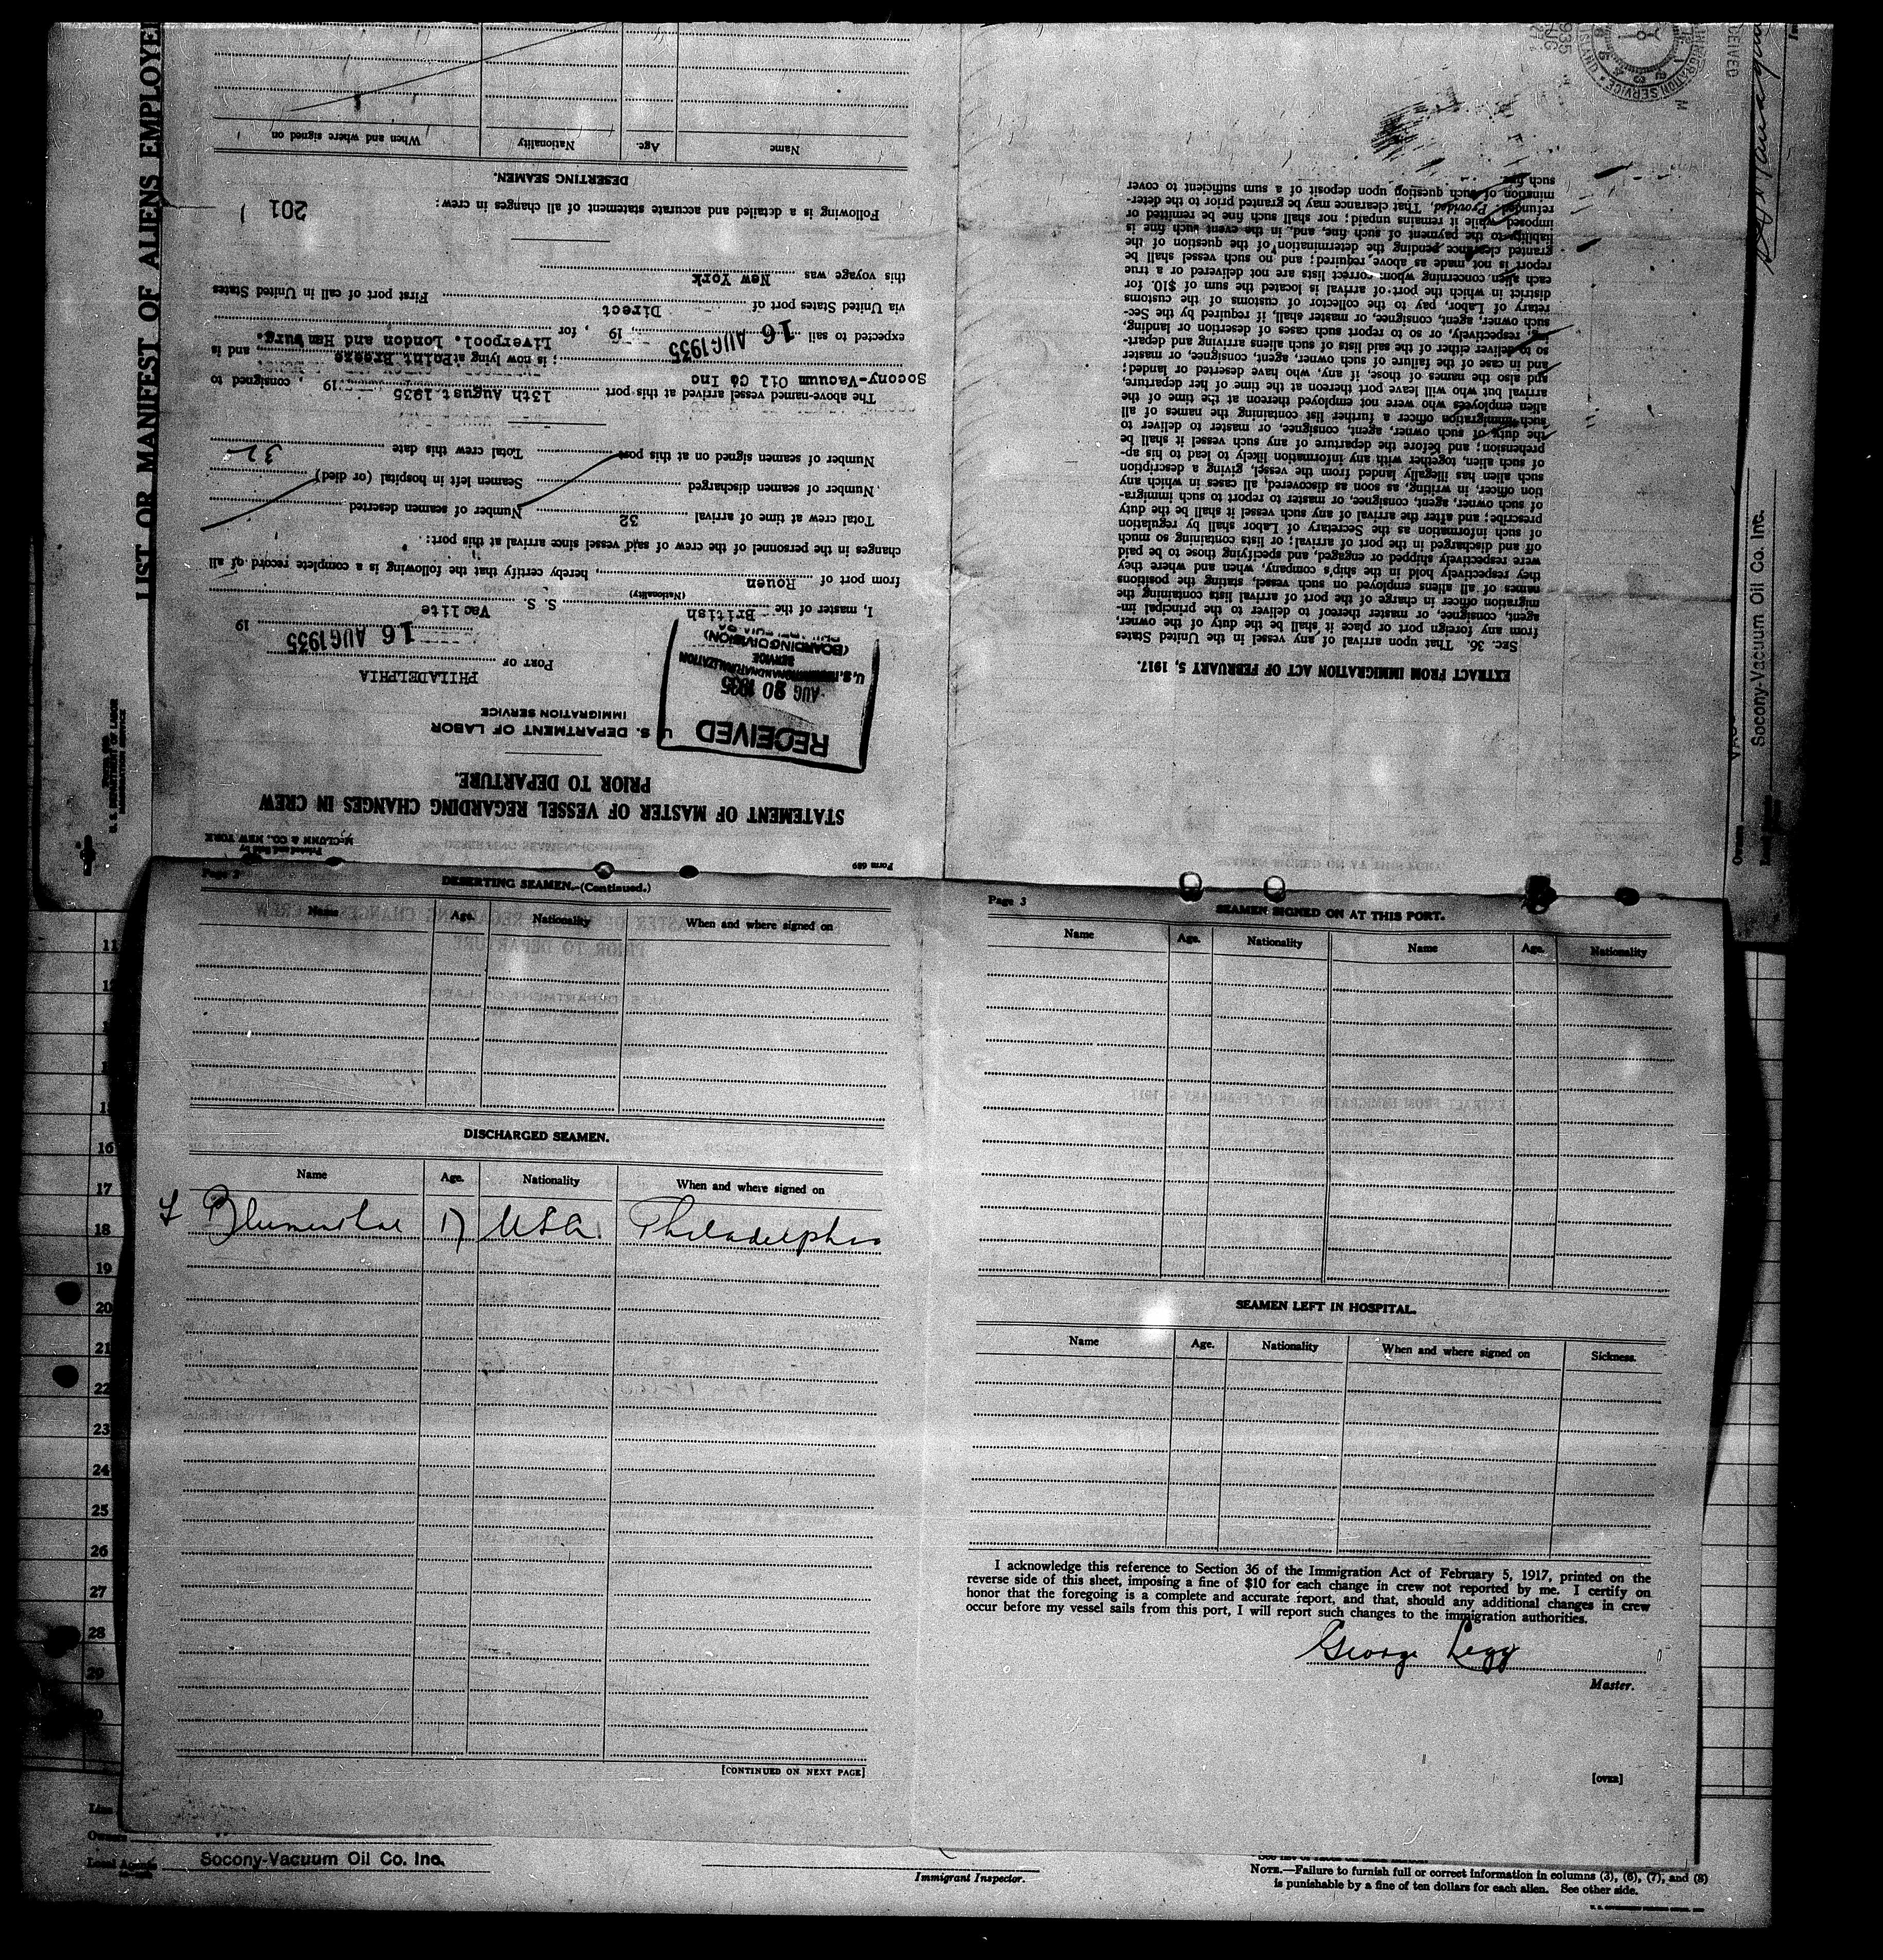 LIST OR MANIFEST OF ALIENS EMPLOYE
U. S. DEPARTMENT OF LABOR
IMMIGRATION SERVICE
Form 689
Printed and Sold by
McCLUNN & CO., NEW YORK
STATEMENT OF MASTER OF VESSEL REGARDING CHANGES IN CREW
PRIOR TO DEPARTURE.
U. S. DEPARTMENT OF LABOR
IMMIGRATION SERVICE
RECEIVED
AUG 20 1935
U.S. IMMIGRATION AND NATURALIZATION
SERVICE
(BOARDING DIVISION)
PHILADELPHIA
PORT OF
16 AUG 1935 19
I, master of the British S. S. Vaclite
(Nationality)
from port of Rouen, hereby certify that the following is a complete record of all
changes in the personnel of the crew of said vessel since arrival at this port:
Total crew at time of arrival 32 Number of seamen deserted
Number of seamen discharged Seamen left in hospital (or died)
Number of seamen signed on at this port Total crew this date 32
The above-named vessel arrived at this port 13th August.1935 19 , consigned to
Socony-Vacuum Oil Co Inc ; is now lying at Point Breeze and is
expected to sail 16 AUG 1935, 19 , for Liverpool. London and Hamburg.
via United States port of Direct First port of call in United States
this voyage was New York
Following is a detailed and accurate statement of all changes in crew: 201
DESERTING SEAMEN.
Name Age. Nationality When and where signed on
EXTRACT FROM IMMIGRATION ACT OF FEBRUARY 5, 1917.
SEC. 36. That upon arrival of any vessel in the United States
from any foreign port or place it shall be the duty of the owner,
agent, consignee, or master thereof to deliver to the principal im-
migration officer in charge of the port of arrival lists containing the
names of all aliens employed on such vessel, stating the positions
they respectively hold in the ship's company, when and where they
were respectively shipped or engaged, and specifying those to be paid
off and discharged in the port of arrival; or lists containing so much
of such information as the Secretary of Labor shall by regulation
prescribe; and after the arrival of any such vessel it shall be the duty
of such owner, agent, consignee, or master to report to such immigra-
tion officer, in writing, as soon as discovered, all cases in which any
such alien has illegally landed from the vessel, giving a description
of such alien, together with any information likely to lead to his ap-
prehension; and before the departure of any such vessel it shall be
the duty of such owner, agent, consignee, or master to deliver to
such immigration officer a further list containing the names of all
alien employees who were not employed thereon at the time of the
arrival but who will leave port thereon at the time of her departure,
and also the names of those, if any, who have deserted or landed;
and in case of the failure of such owner, agent, consignee, or master
so to deliver either of the said lists of such aliens arriving and depart-
ing, respectively, or so to report such cases of desertion or landing,
such owner, agent, consignee, or master shall, if required by the Sec-
retary of Labor, pay to the collector of customs of the customs
district in which the port of arrival is located the sum of $10. for
each alien concerning whom correct lists are not delivered or a true
report is not made as above required; and no such vessel shall be
granted clearance pending the determination of the question of the
liability to the payment of such fine, and, in the event such fine is
imposed, while it remains unpaid; nor shall such fine be remitted or
refunded: Provided, That clearance may be granted prior to the deter-
mination of such question upon deposit of a sum sufficient to cover
such fine.
IMMIGRATION SERVICE
1935
AUG
CEIVED
Socony-Vacuum Oil Co. Inc.
Owners
DESERTING SEAMEN.-(Continued.)
Name Age. Nationality When and where signed on
DISCHARGED SEAMEN.
Name Age. Nationality When and where signed on
L Blumenthal 17 USA. Philadelphia
[CONTINUED ON NEXT PAGE]
Page 3
SEAMEN SIGNED ON AT THIS PORT.
Name Age. Nationality Name Age. Nationality
SEAMEN LEFT IN HOSPITAL.
Name Age. Nationality When and where signed on Sickness.
I acknowledge this reference to Section 36 of the Immigration Act of February 5, 1917, printed on the
reverse side of this sheet, imposing a fine of $10 for each change in crew not reported by me. I certify on
honor that the foregoing is a complete and accurate report, and that, should any additional changes in crew
occur before my vessel sails from this port, I will report such changes to the immigration authorities.
George Legg
Master.
[OVER]
11
16
17
18
19
20
21
22
23
24
25
26
27
28
29
Line
Owners
Local Agents
Socony-Vacuum Oil Co. Inc.
Immigrant Inspector.
NOTE.—Failure to furnish full or correct information in columns (3), (6), (7), and (8)
is punishable by a fine of ten dollars for each alien. See other side.